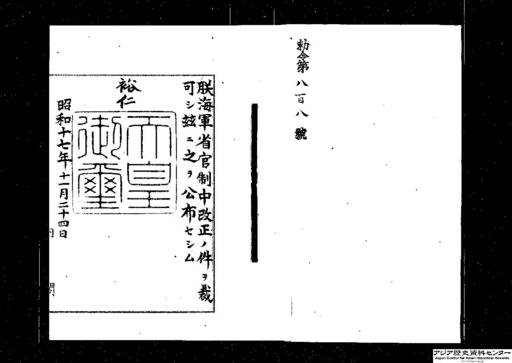 勅令第八百八號
朕海軍省官制中改正ノ件ヲ裁
可シ玆ニ之ヲ公布セシム
裕仁
天皇御璽
昭和十七年十一月二十四日
アジア歴史資料センター
Japan Center for Asian Historical Records